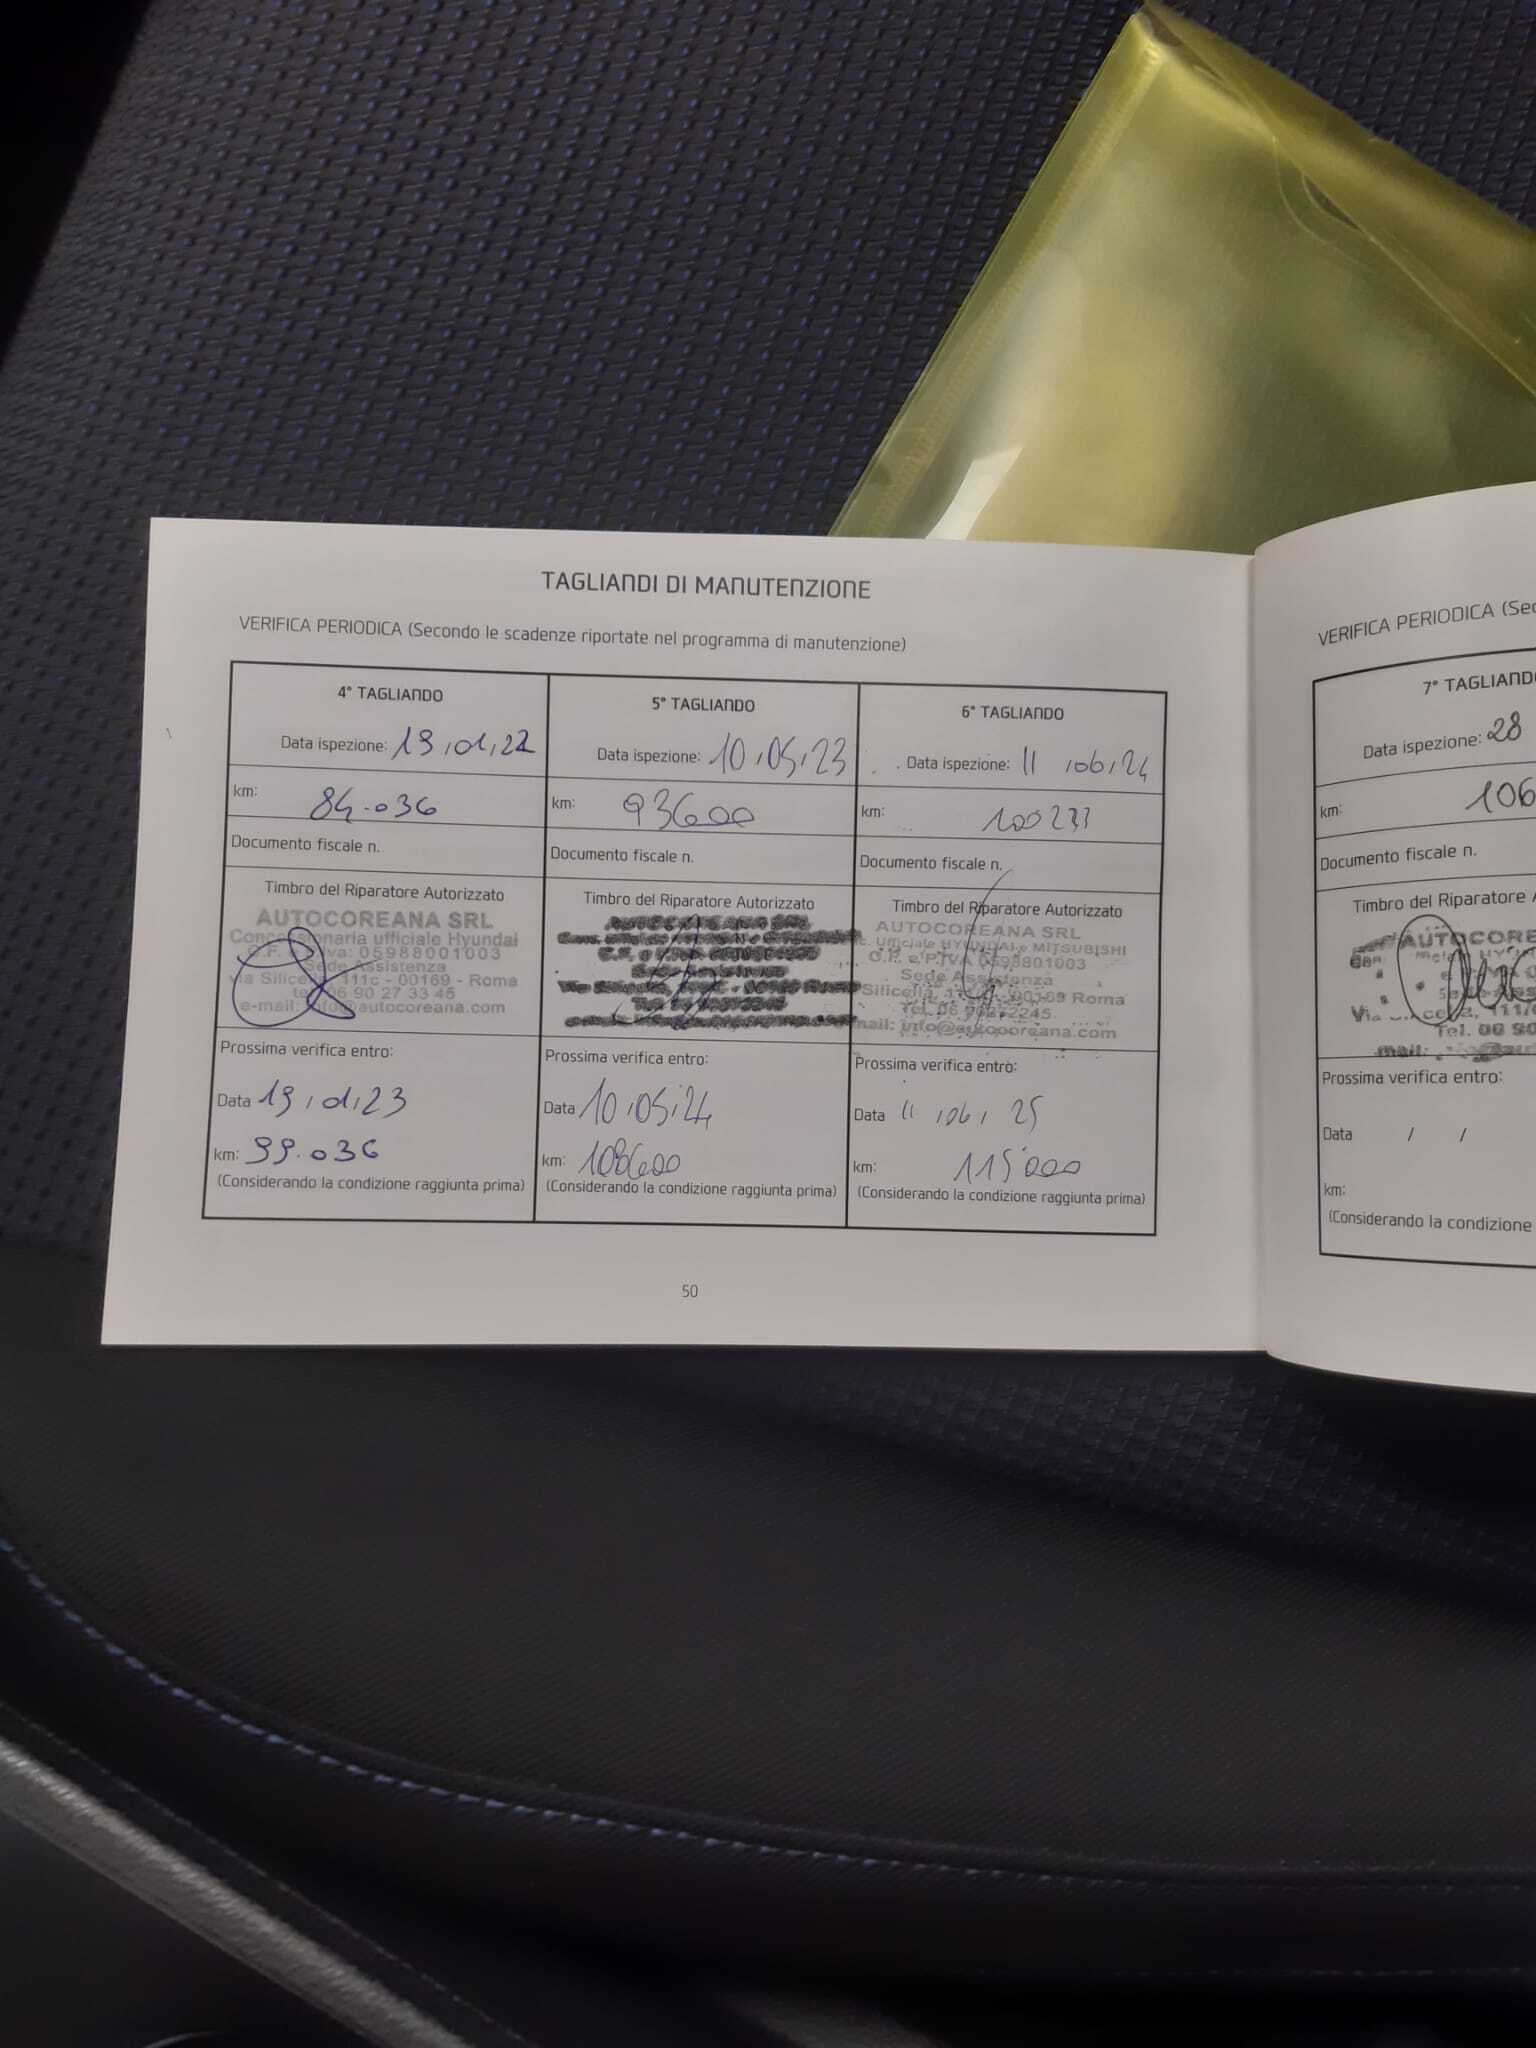 TAGLIANDI DI MANUTENZIONE
VERIFICA PERIODICA (Secondo le scadenze riportate nel programma di manutenzione)
4° TAGLIANDO
Data ispezione: 19,01,22
km: 84.036
Documento fiscale n.
Timbro del Riparatore Autorizzato
AUTOCOREANA SRL
Concessionaria ufficiale Hyundai
C.F. e P.Iva: 05988001003
Sede Assistenza
via Silicella, 111c - 00169 - Roma
tel. 06 90 27 33 45
e-mail: info@autocoreana.com
Prossima verifica entro:
Data 19,01,23
km: 99.036
(Considerando la condizione raggiunta prima)
5° TAGLIANDO
Data ispezione: 10,05,23
km: 93600
Documento fiscale n.
Timbro del Riparatore Autorizzato
Prossima verifica entro:
Data 10,05,24
km: 108600
(Considerando la condizione raggiunta prima)
6° TAGLIANDO
Data ispezione: 11,06,24
km: 100233
Documento fiscale n.
Timbro del Riparatore Autorizzato
AUTOCOREANA SRL
c. Ufficiale HYUNDAI e MITSUBISHI
C.F. e P.IVA
Sede Assistenza
Silicella, 00169 Roma
Tel. 06
mail: info@autocoreana.com
Prossima verifica entro:
Data 11,06,25
km: 115000
(Considerando la condizione raggiunta prima)
50
VERIFICA PERIODICA (Sec
7° TAGLIANDO
Data ispezione: 28
km: 106
Documento fiscale n.
Timbro del Riparatore A
AUTOCORE
Tel. 06 90
mail:
Prossima verifica entro:
Data / /
km:
(Considerando la condizione